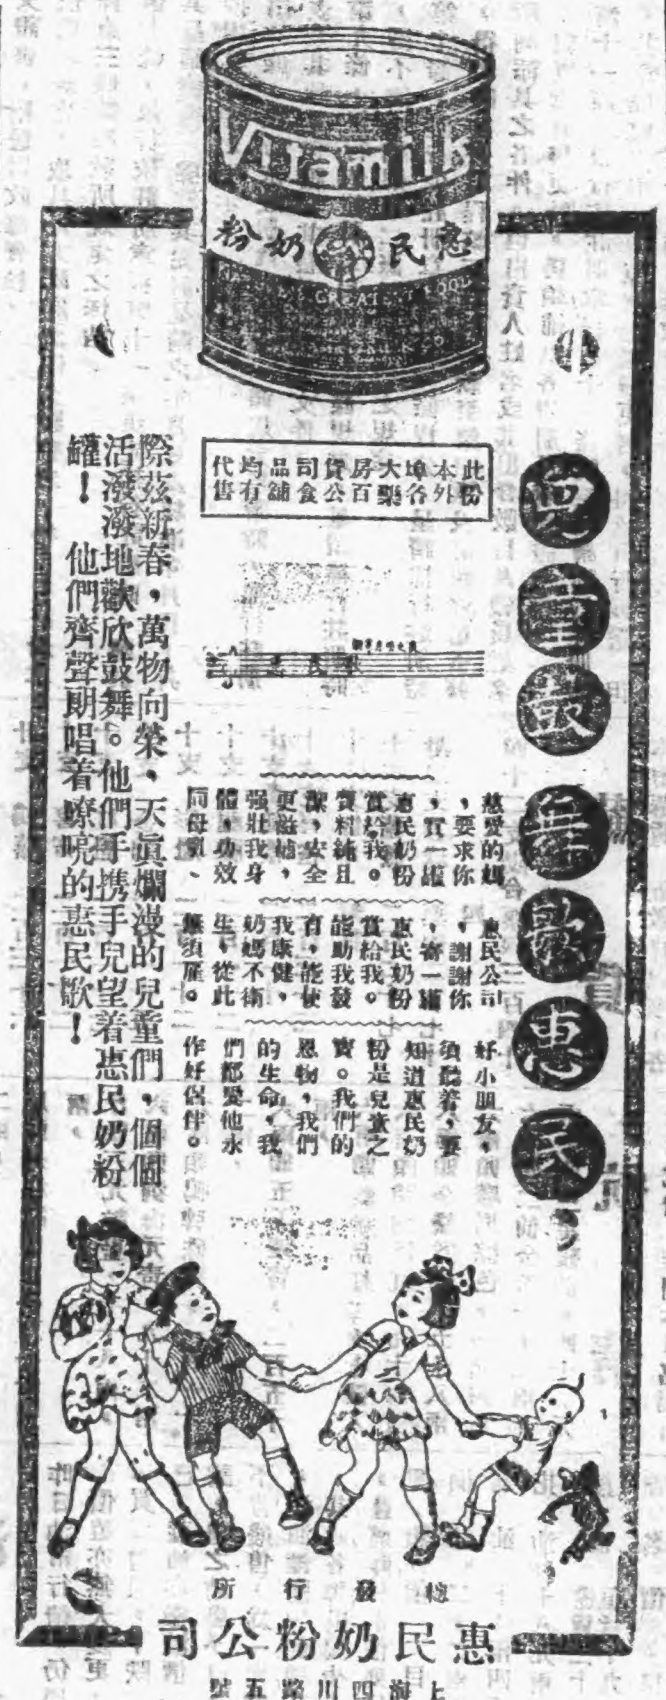 Vitamilk
惠民奶粉
GREATEST FOOD
兒童最喜歡惠民
此粉
本外
埠各
大藥
房百
貨公
司食
品舖
均有
代售
慈愛的媽
，要求你
，買一罐
惠民奶粉
賞給我。
質料純且
潔，安全
更滋補，
強壯我身
體，功效
同母乳、
惠民公司
，謝謝你
，寄一罐
惠民奶粉
賞給我。
能助我發
育，能使
我康健，
奶媽不衛
生，從此
無須雇。
好小朋友，
須聽着，要
知道惠民奶
粉是兒童之
寶。我們的
恩物，我們
的生命，我
們都愛他永
作好侶伴。
際茲新春，萬物向榮，天真爛漫的兒童們，個個
活潑潑地歡欣鼓舞。他們手携手兒望着惠民奶粉
罐！　他們齊聲期唱着嘹喨的惠民歌！
總發行所
惠民奶粉公司
上海四川路五號